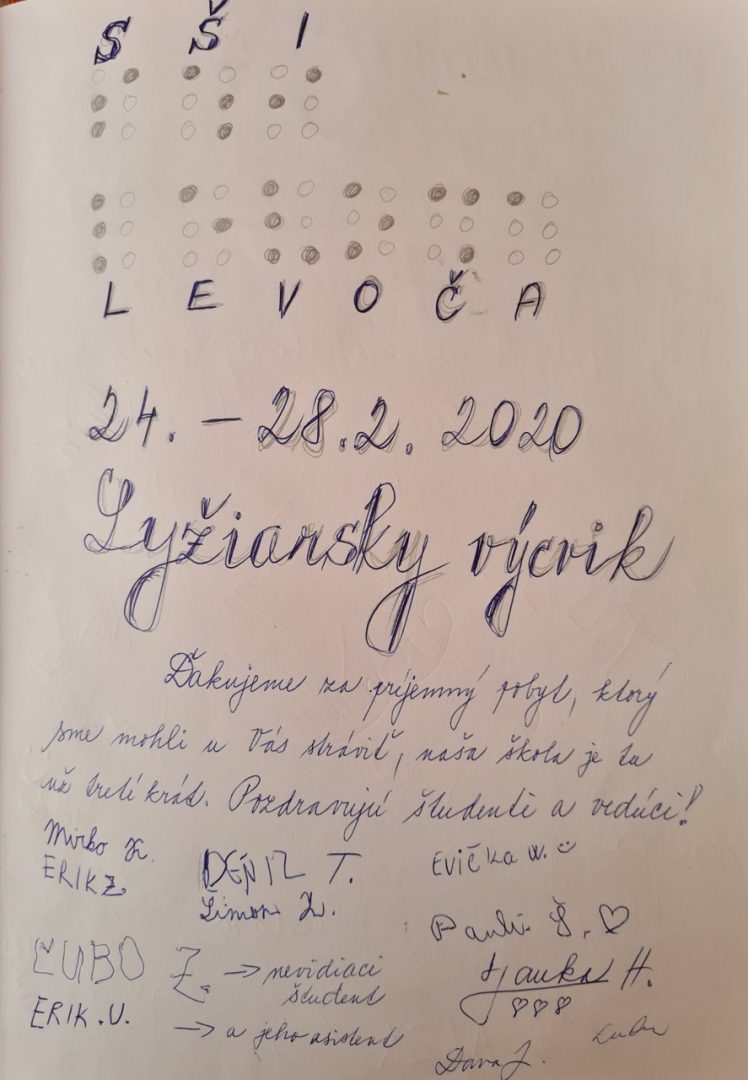 S Š I
L E V O Č A
24. – 28.2. 2020
Lyžiarsky výcvik
Ďakujeme za príjemný pobyt, ktorý
sme mohli u Vás stráviť, naša škola je tu
už tretí krát. Pozdravujú študenti a vedúci!
Mirko K.
ERIK Z.
DENIZ T.
Simon K.
Evička W.
Pauli Š.
ĽUBO Z. → nevidiaci
študent
ERIK .U. → a jeho asistent
Hanka H.
Dana J.